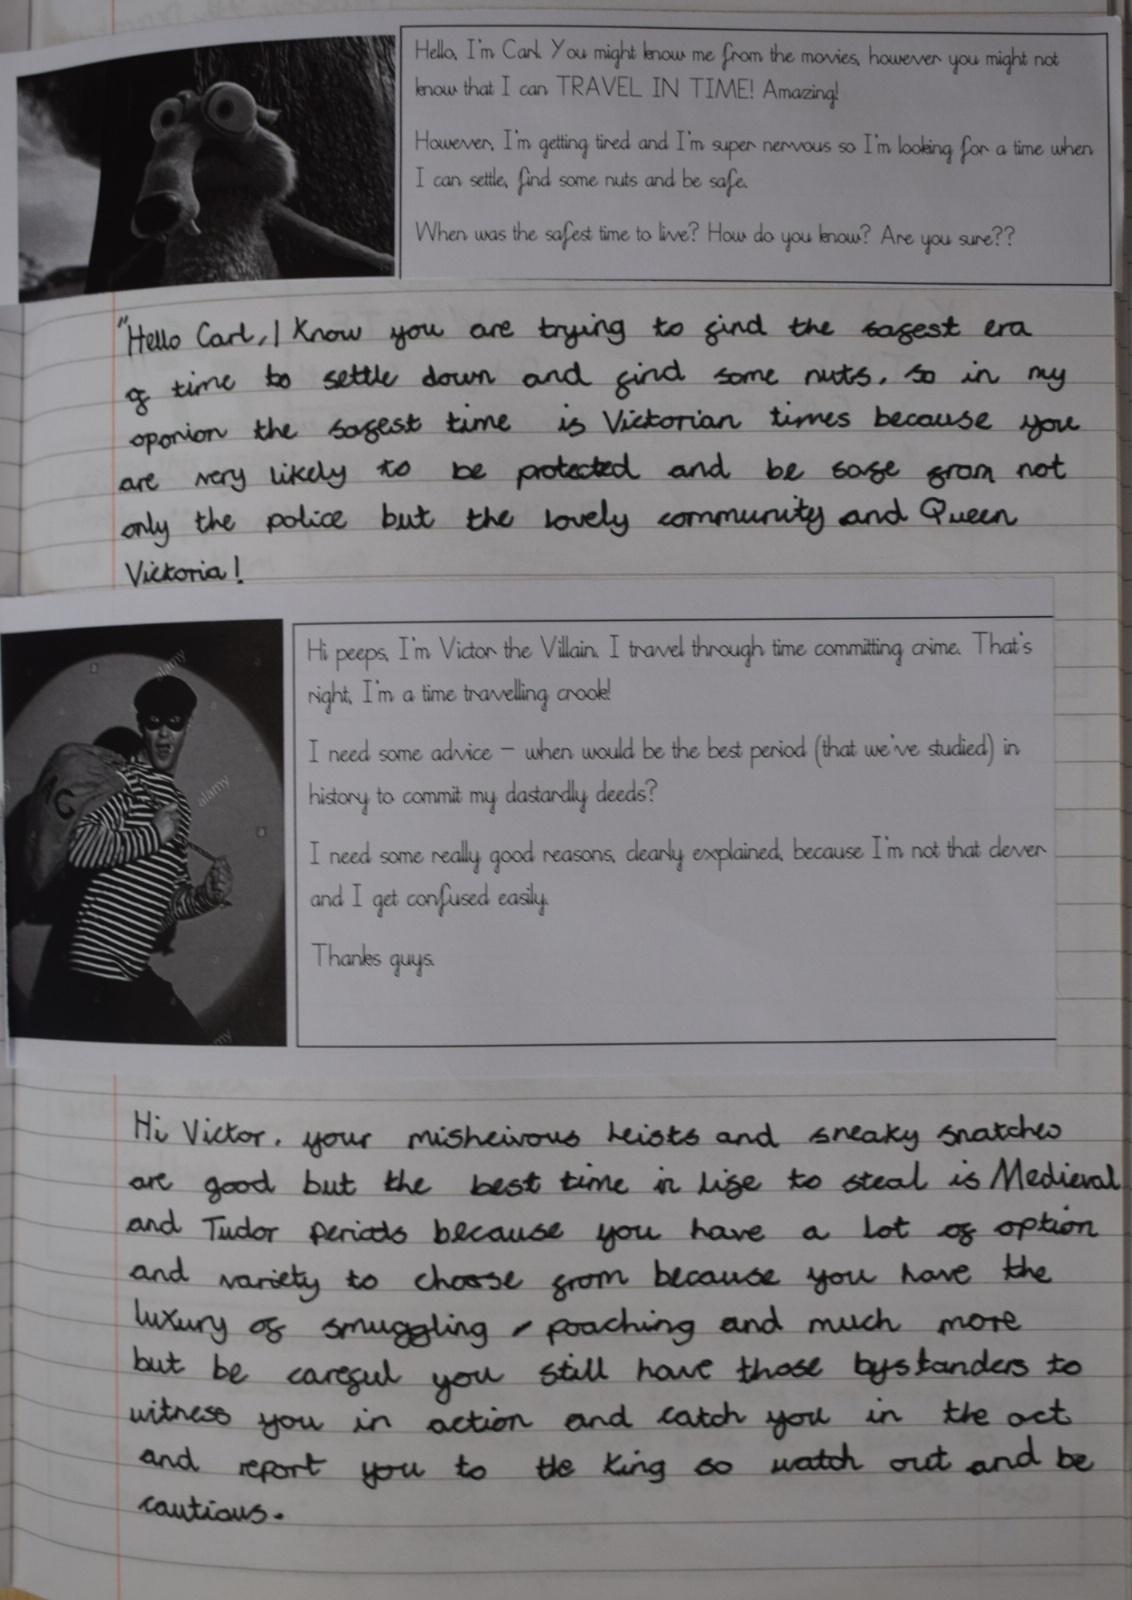 Hello, I'm Carl. You might know me from the movies, however you might not
know that I can TRAVEL IN TIME! Amazing!
However, I'm getting tired and I'm super nervous so I'm looking for a time when
I can settle, find some nuts and be safe.
When was the safest time to live? How do you know? Are you sure??
"Hello Carl, I know you are trying to find the safest era
of time to settle down and find some nuts, so in my
oponion the safest time is Victorian times because you
are very likely to be protected and be safe from not
only the police but the lovely community and Queen
Victoria!
Hi peeps, I'm Victor the Villain. I travel through time committing crime. That's
right, I'm a time travelling crook!
I need some advice – when would be the best period (that we've studied) in
history to commit my dastardly deeds?
I need some really good reasons, clearly explained, because I'm not that clever
and I get confused easily.
Thanks guys.
alamy
alamy
Hi Victor, your misheivous heists and sneaky snatches
are good but the best time in life to steal is Medieval
and Tudor periods because you have a lot of option
and variety to choose from because you have the
luxury of smuggling, poaching and much more
but be careful you still have those bystanders to
witness you in action and catch you in the act
and report you to the king so watch out and be
cautious.